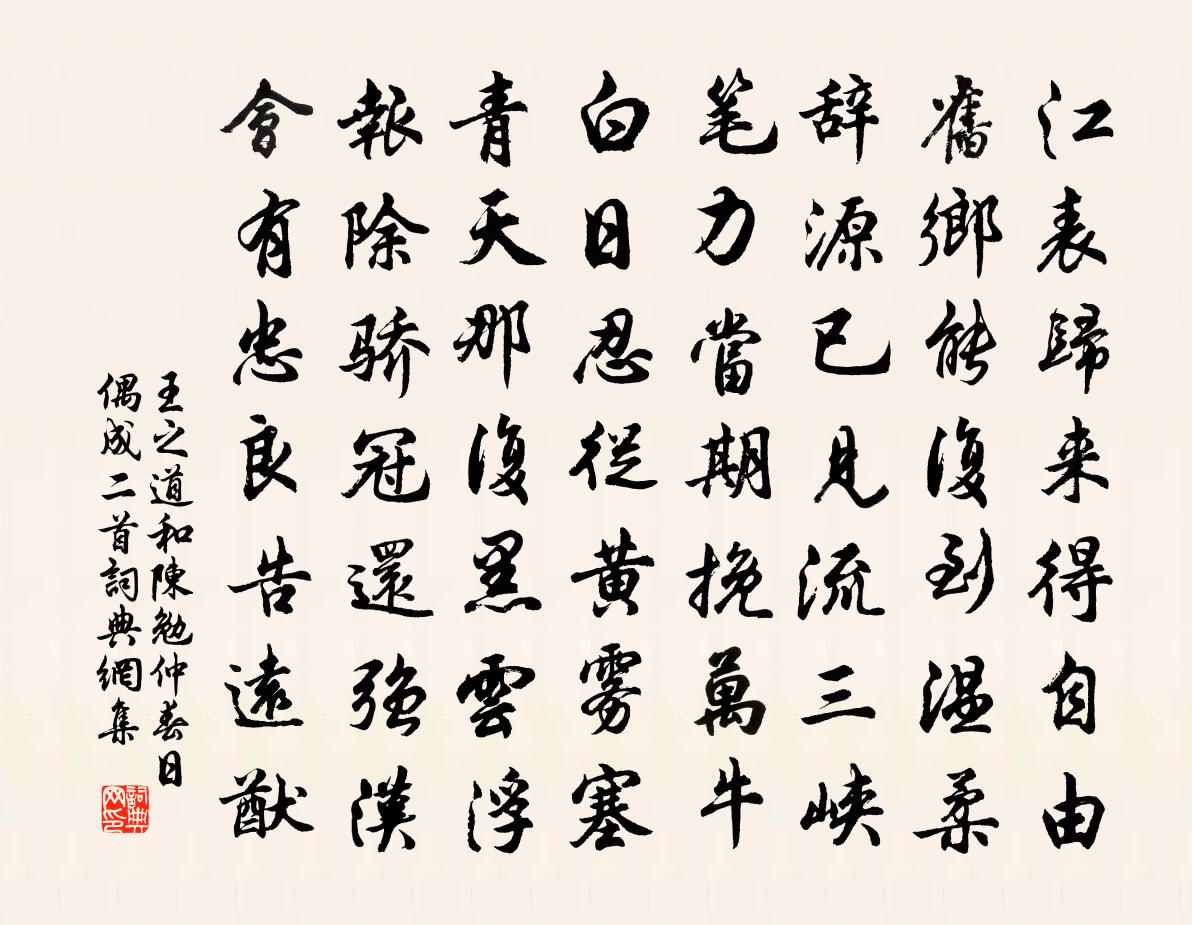 江表歸来得自由
舊鄉能復到温柔
辞源已見流三峽
笔力當期挽萬牛
白日忍從黄雾塞
青天那復黑雲浮
報除骄冠還強漢
會有忠良告遠猷
王之道和陳勉仲春日
偶成二首詞典網集
詞典
网印